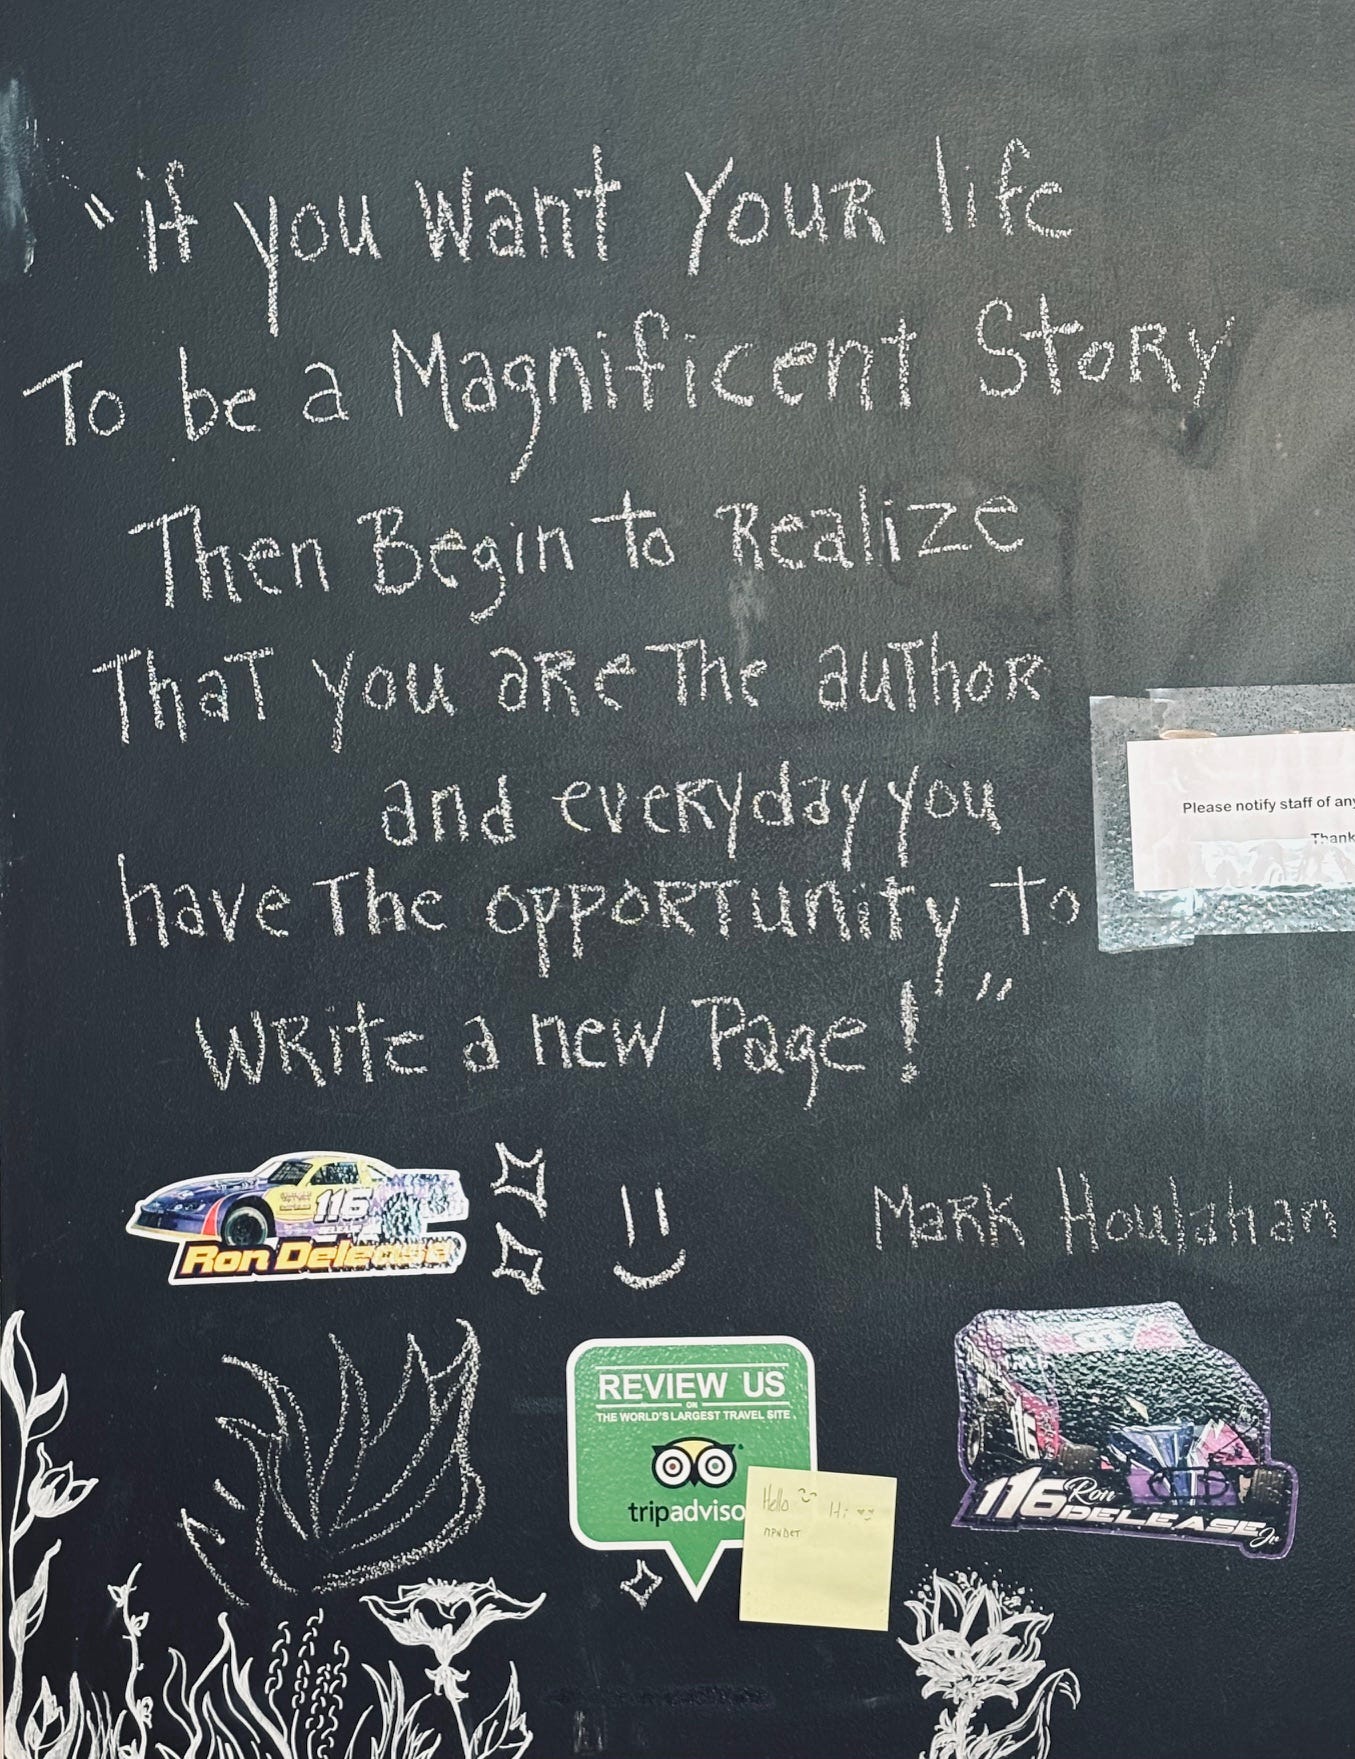 "if you want your life
To be a Magnificent Story
Then Begin to Realize
That you are the author
and everyday you
have the opportunity to
write a new Page!"
Please notify staff of any
Thank
116
Ron Delease
Mark Houlahan
REVIEW US
ON
THE WORLD'S LARGEST TRAVEL SITE
tripadviso
Hello Hi
116 Ron
DELEASE Jr